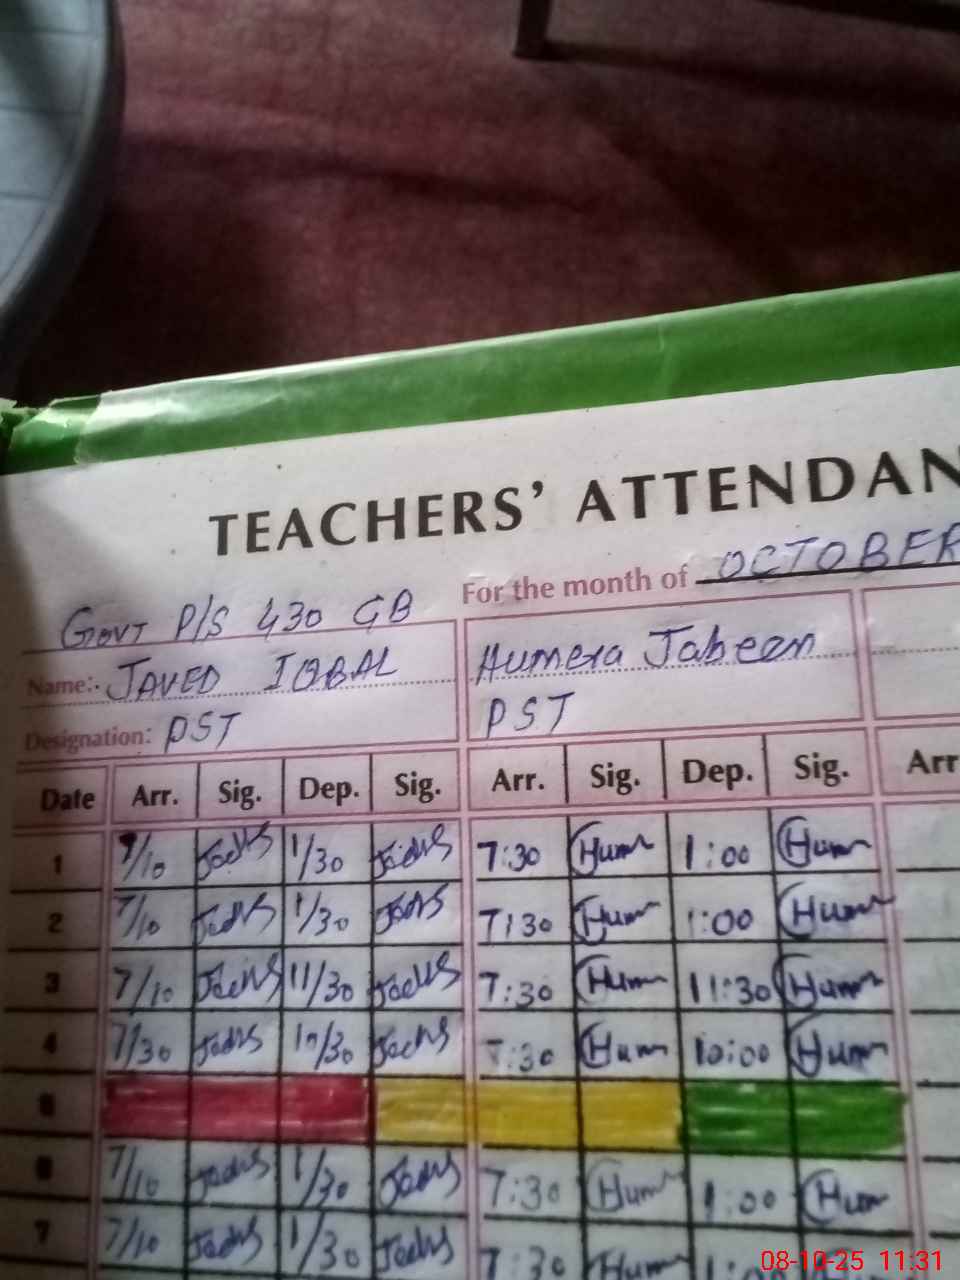 TEACHERS' ATTENDAN
For the month of OCTOBER
GOVT P/S 430 GB
Name: JAVED IQBAL Humera Jabeen
Designation: PST PST
Date Arr. Sig. Dep. Sig. Arr. Sig. Dep. Sig. Arr
1 7/10 1/30 7:30 Hum 1:00 Hum
2 7/10 1/30 7:30 Hum 1:00 Hum
3 7/10 11/30 7:30 Hum 11:30 Hum
4 7/30 :30 Hum 10:00 Hum
6 7/10 1/30 7:30 Hum 1:00 Hum
7 7/10 1/30 7:30 Hum
08-10-25 11:31